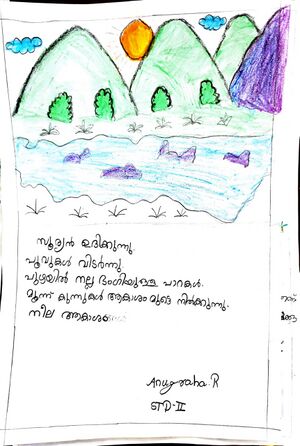 സൂര്യൻ ഉദിക്കുന്നു.
പൂവുകൾ വിടർന്നു
പുഴയിൽ നല്ല ഭംഗിയുള്ള പാറകൾ.
മൂന്ന് കുന്നുകൾ ആകാശം മുട്ടെ നിൽക്കുന്നു.
നീല ആകാശം
Anugraha. R
STD-II